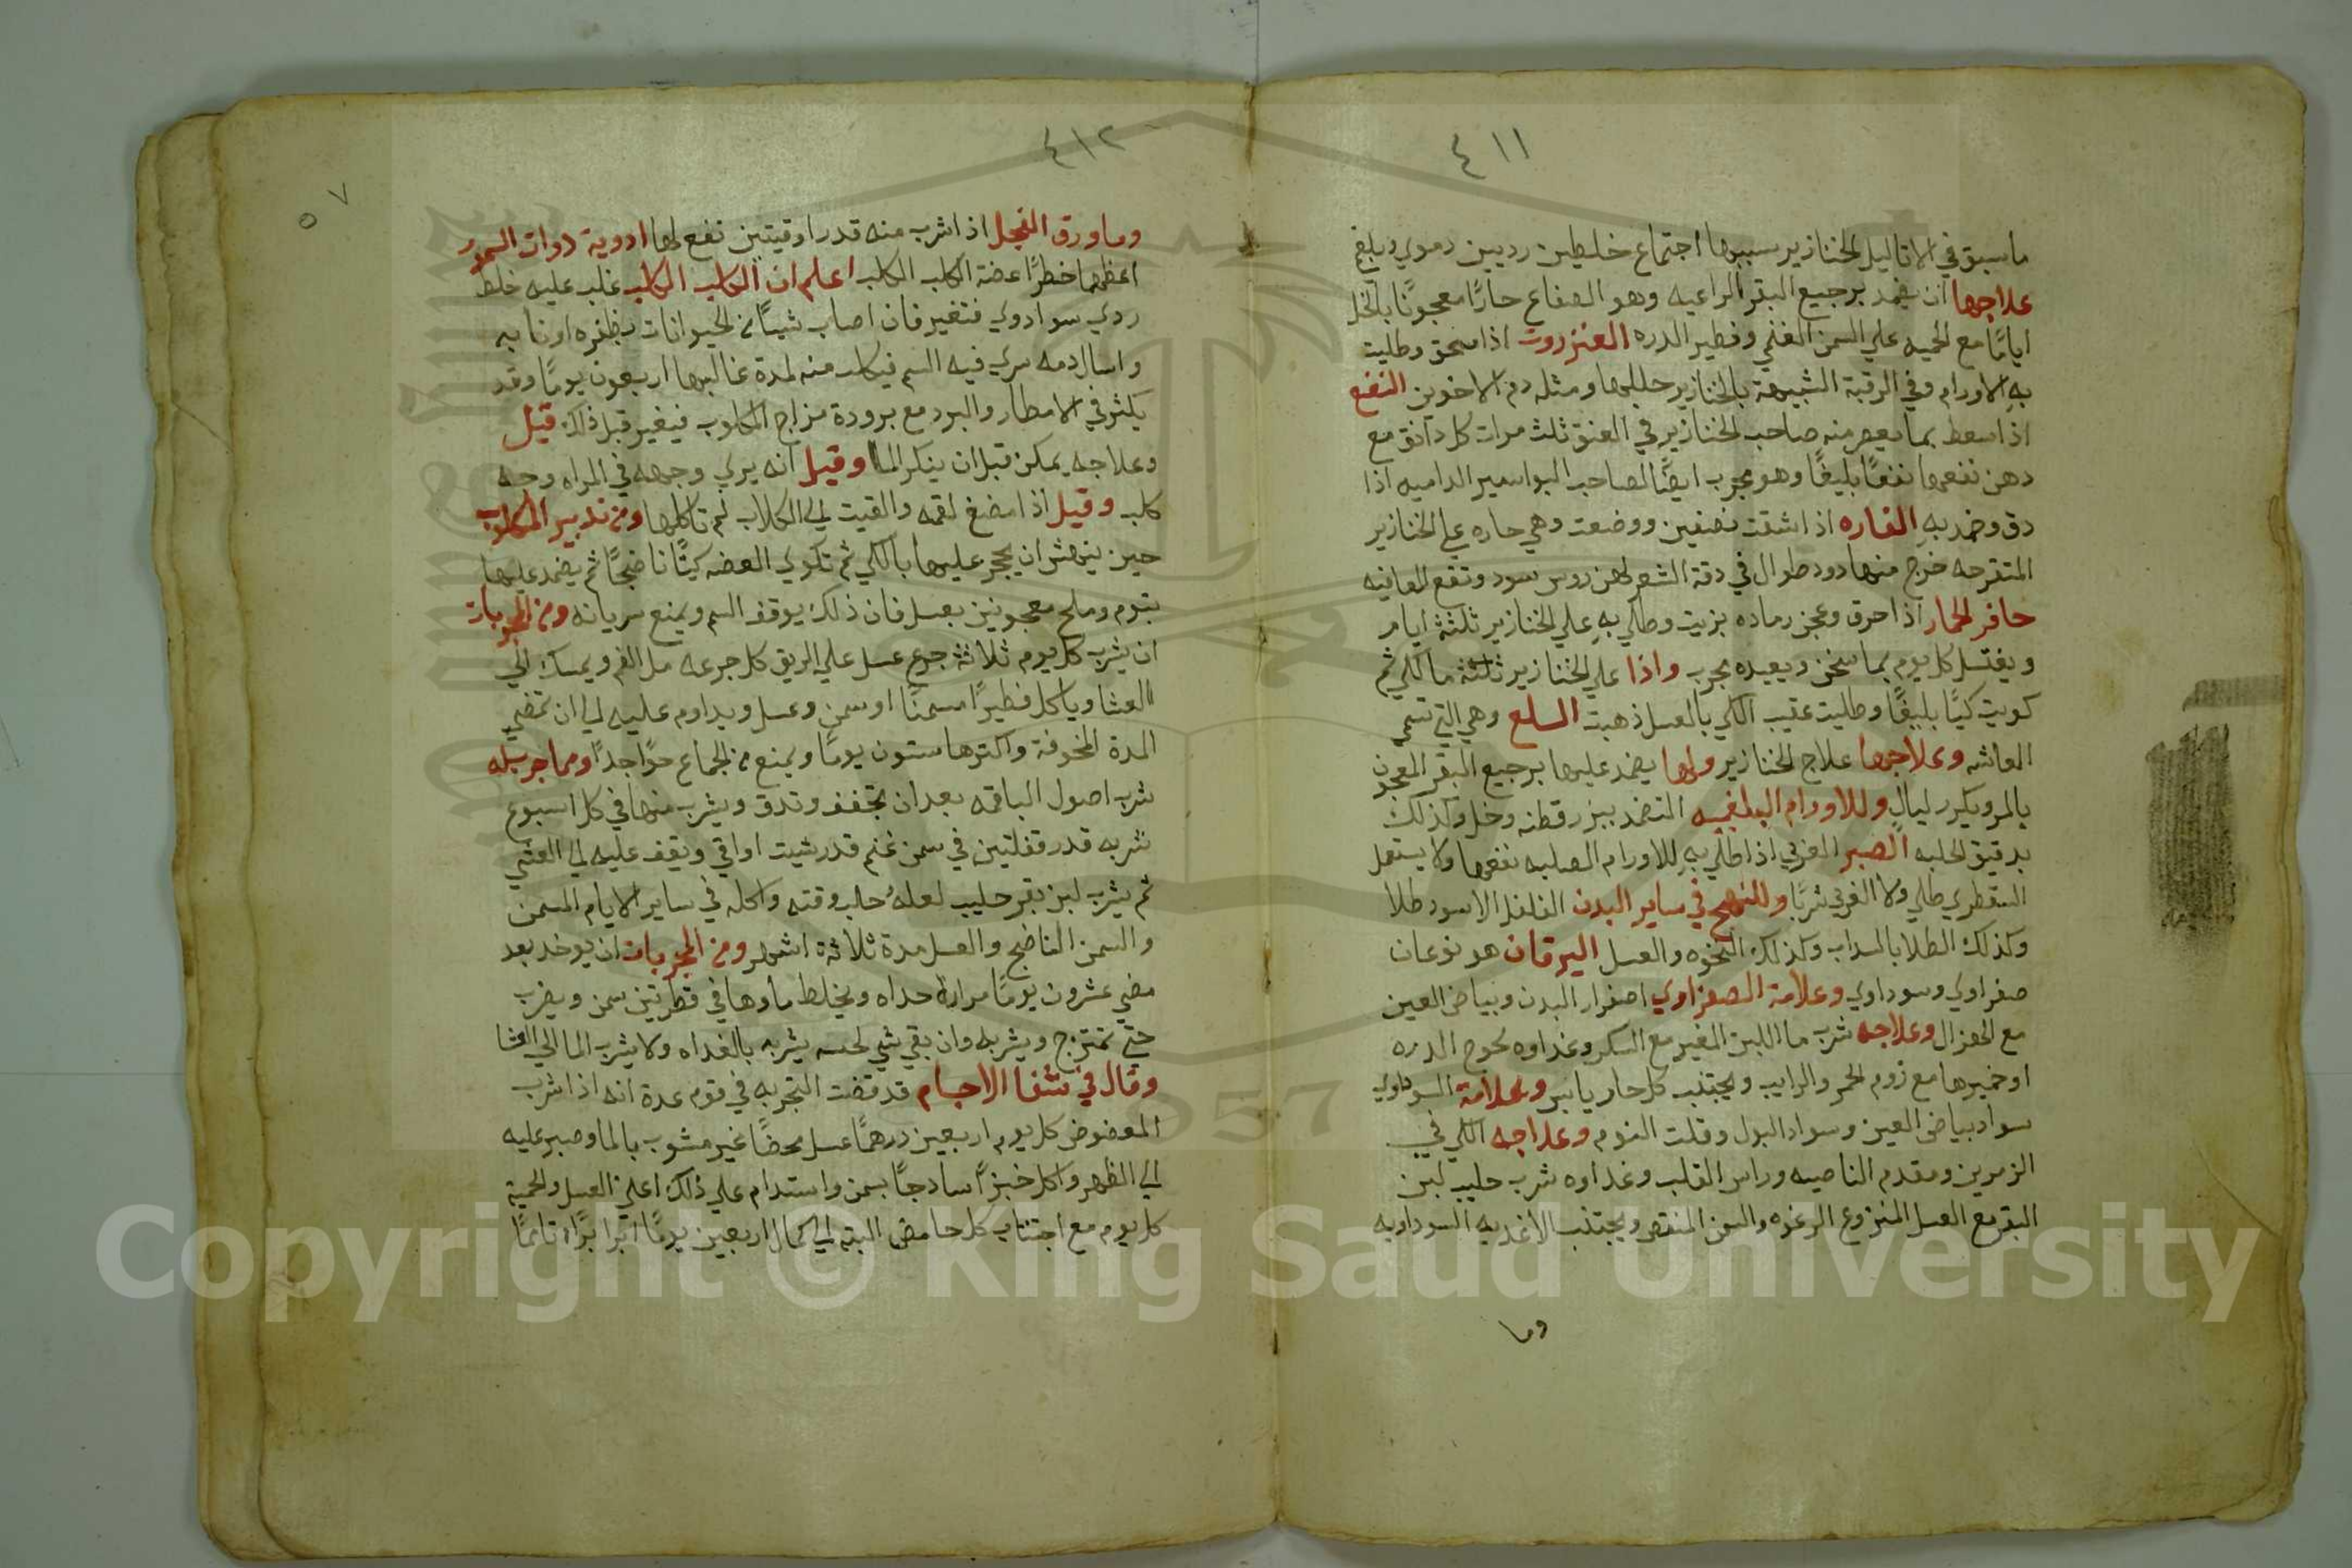 ٤١١
ماسبق في الاثاليل الخنازير سببها اجتماع خلطين رديين دموي وبلغم
علاجها ان يضمد برجيع البقر الراعيه وهو الضفاع حارًا معجونًا بالخل
ايامًا مع الحميه علي السمن الغنمي وفطير الدره العنزروت اذا سحق وطليت
به الاورام وفي الرقبة الشبيهة بالخنازير حللها ومثله دم الاخوين النعنع
اذا سعط بما يعصر منه صاحب الخنازير في العنق ثلث مرات كل دانق مع
دهن نفعها نفعًا بليغًا وهو مجرب ايضًا لصاحب البواسير الداميه اذا
دق وضمد به الفاره اذا شقت نصفين ووضعت وهي حاره علي الخنازير
المتقرحه خرج منها دود طوال في دقة الشعر لهن روس سود وتقع العافيه
حافر الحمار اذا احرق وعجن رماده بزيت وطلي به علي الخنازير ثلثة ايام
ويغتسل كل يوم بما سخن ويعيده مجرب واذا علي الخنازير ثلثة ما الكي ثم
كويت كيًا بليغًا وطليت عقيب الكي بالعسل ذهبت السلع وهي التي تسمي
العاشه وعلاجها علاج الخنازير ولها يضمد عليها برجيع البقر المعجون
بالمر ويكرر ليالٍ وللاورام البلغميه التضمد ببزر قطنه وخل وكذلك
بدقيق الحلبه الصبر العربي اذا طلي به للاورام الصلبه نفعها ولا يستعمل
السقطري طلي ولا العربي شربًا وللنهج في ساير البدن الفلفل الاسود طلا
وكذلك الطلا بالسداب وكذلك النخوه والعسل اليرقان هو نوعان
صفراوي وسوداوي وعلامة الصفراوي اصفرار البدن وبياض العين
مع الهزال وعلاجه شرب ما اللبن المغير مع السكر وغداوه لحوح الدره
او خميرها مع زوم الحمر والرايب ويجتنب كل حار يابس وعلامة السوداوي
سواد بياض العين وسواد البول وقلت النوم وعلاجه الكي في
الزمرين ومقدم الناصيه وراس القلب وغداوه شرب حليب لبن
البقر مع العسل المنزوع الرغوه والسمن المنقص ويجتنب الاغديه السوداويه
وما
٤١٢
٥٧
وما ورق الفجل اذا شرب منه قدر اوقيتين نفع لها ادوية دوات السموم
اعظمها خطرًا عضة الكلب الكلب اعلم ان الكلب الكلب غلب عليه خلط
ردي سوادوي فتغير فان اصاب شيئًا من الحيوانات بظفره او نابه
واسال دمه سري فيه السم فيكلب منه لمدة غالبها اربعون يومًا وقد
يكثر في الامطار والبرد مع برودة مزاج المكلوب فيغير قبل ذلك قيل
وعلاجه يمكن قبل ان ينكر الما وقيل انه يري وجهه في المراه وجه
كلب وقيل اذا مضغ لقمه والقيت الي الكلاب لم تاكلها ومن تدبير المكلوب
حين ينهش ان يحجر عليها بالكي ثم تكوي العضه كيًّا ناضجًا ثم يضمد عليها
بتوم وملح معجونين بعسل فان ذلك يوقف السم ويمنع سريانه ومن المجربات
ان يشرب كل يوم ثلاثة جرع عسل علي الريق كل جرعه مل الفم ويمسك الي
العشا وياكل فطيرًا مسمنًا او سمن وعسل ويداوم عليه الي ان تمضي
المدة المخوفة واكثرها ستون يومًا ويمنع من الجماع حرًا جدًا ومما جرب له
شرب اصول الباقمه بعد ان تجفف وتدق ويشرب منها في كل اسبوع
شربه قدر قفلتين في سمن غنم قدر شيت اواقي ويقف عليه الي العشي
ثم يشرب لبن بقر حليب لعله حلب وقته واكله في ساير الايام المسمن
والسمن الناضج والعسل مدة ثلاثة اشهر ومن المجربات ان يوخد بعد
مضي عشرون يومًا مرارة حداه ويخلط ماوها في قطرتين سمن ويضرب
حتي تمتزج ويشربه وان بقي شي لحسه يشربه بالغداه ولا يشرب الما الي العشا
وقال في شفا الاجسام قد قضت التجربه في قوم عدة انه اذا شرب
المعضوض كل يوم اربعين درهمًا عسل محضًا غير مشوب بالما وصبر عليه
الي الظهر واكل خبزًا سادجًا بسمن واستدام علي ذلك اعلي العسل والحمية
كل يوم مع اجتناب كل حامض البته الي كمال اربعين يومًا ابرا برًا تامًا
Copyright © King Saud University